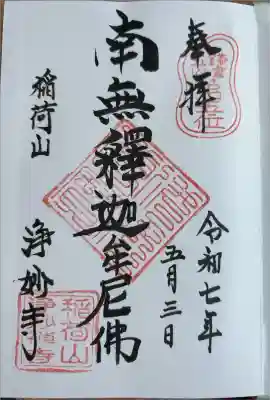 奉拝
令和七年
五月三日
南無釋迦牟尼佛
稲荷山
浄妙寺
稲荷山
浄妙寺